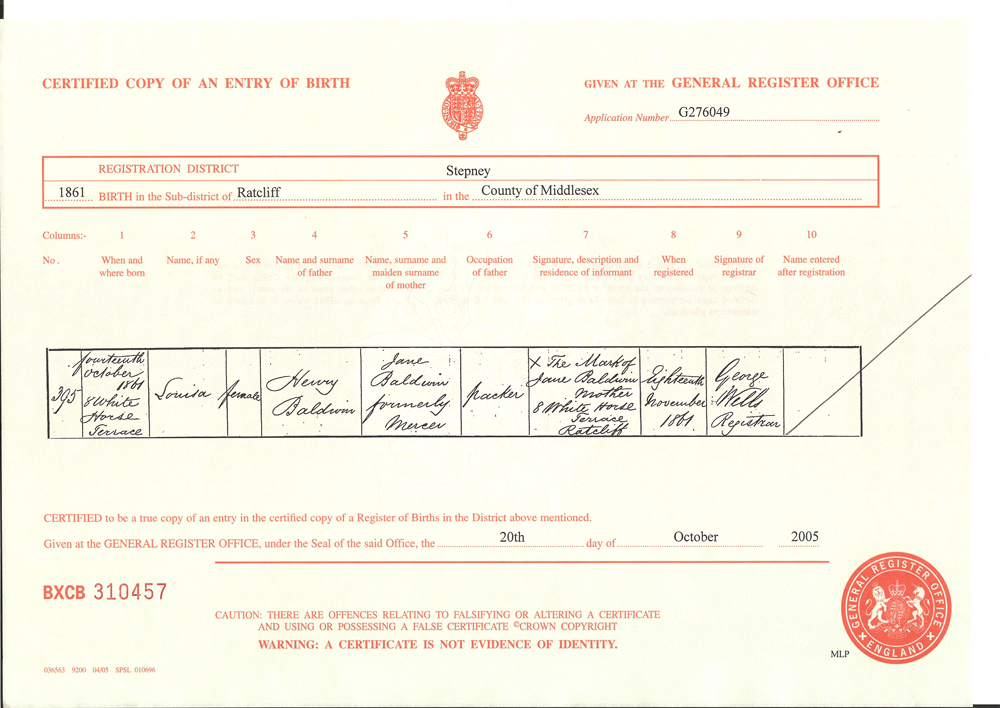 CERTIFIED COPY OF AN ENTRY OF BIRTH
GIVEN AT THE GENERAL REGISTER OFFICE
Application Number G276049
REGISTRATION DISTRICT Stepney
1861 BIRTH in the Sub-district of Ratcliff in the County of Middlesex
Columns:- 1 2 3 4 5 6 7 8 9 10
No. When and where born
Name, if any
Sex
Name and surname of father
Name, surname and maiden surname of mother
Occupation of father
Signature, description and residence of informant
When registered
Signature of registrar
Name entered after registration
395
fourteenth
October
1861
8 White
Horse
Terrace
Louisa
female
Henry
Baldwin
Jane
Baldwin
formerly
Mercer
Packer
X The Mark of
Jane Baldwin
Mother
8 White Horse
Terrace
Ratcliff
Eighteenth
November
1861
George
Wells
Registrar
CERTIFIED to be a true copy of an entry in the certified copy of a Register of Births in the District above mentioned.
Given at the GENERAL REGISTER OFFICE, under the Seal of the said Office, the 20th day of October 2005
BXCB 310457
CAUTION: THERE ARE OFFENCES RELATING TO FALSIFYING OR ALTERING A CERTIFICATE
AND USING OR POSSESSING A FALSE CERTIFICATE ©CROWN COPYRIGHT
WARNING: A CERTIFICATE IS NOT EVIDENCE OF IDENTITY.
GENERAL REGISTER OFFICE
ENGLAND
MLP
036563 9200 04/05 SPSL 010696